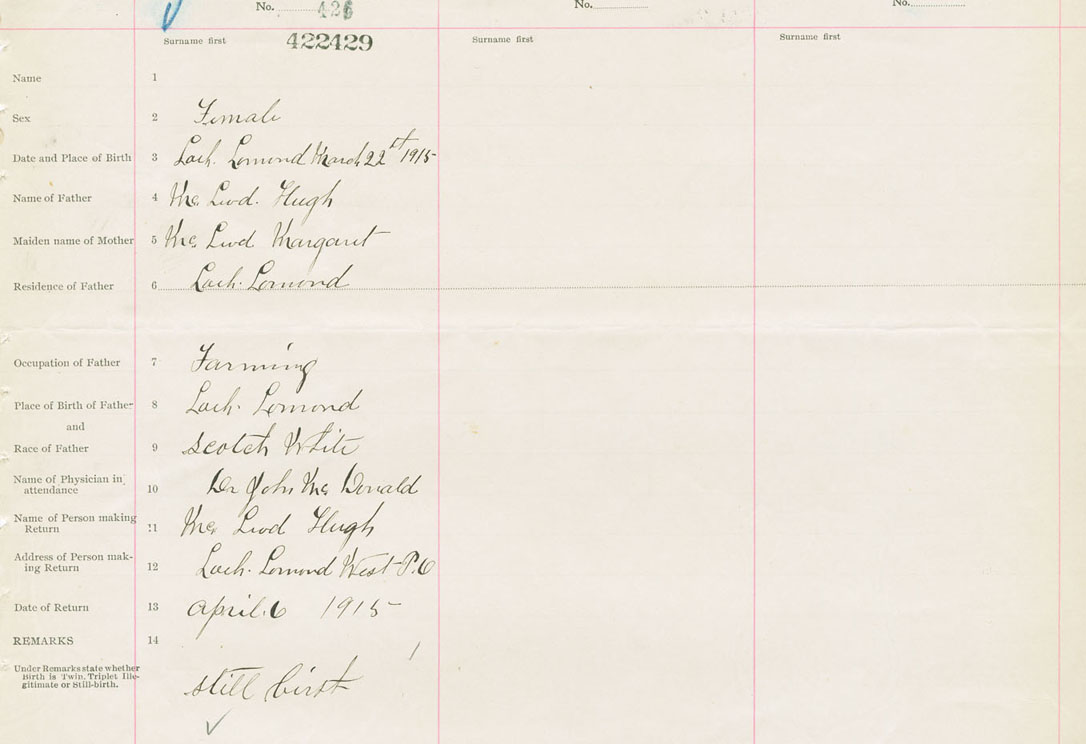 No. 426
No.
No.
Surname first 422429
Surname first
Surname first
Name 1
Sex 2 Female
Date and Place of Birth 3 Loch. Lomond March 22st 1915
Name of Father 4 Mc Lwd. Hugh
Maiden name of Mother 5 Mc Lwd Margaret
Residence of Father 6 Loch. Lomond
Occupation of Father 7 Farming
Place of Birth of Father 8 Loch. Lomond
and
Race of Father 9 Scotch White
Name of Physician in
attendance 10 Dr John Mc Donald
Name of Person making
Return 11 Mc Lwd Hugh
Address of Person mak-
ing Return 12 Loch. Lomond West P.O
Date of Return 13 April. 6 1915
REMARKS 14
Under Remarks state whether
Birth is Twin, Triplet Ille-
gitimate or Still-birth.
still birth